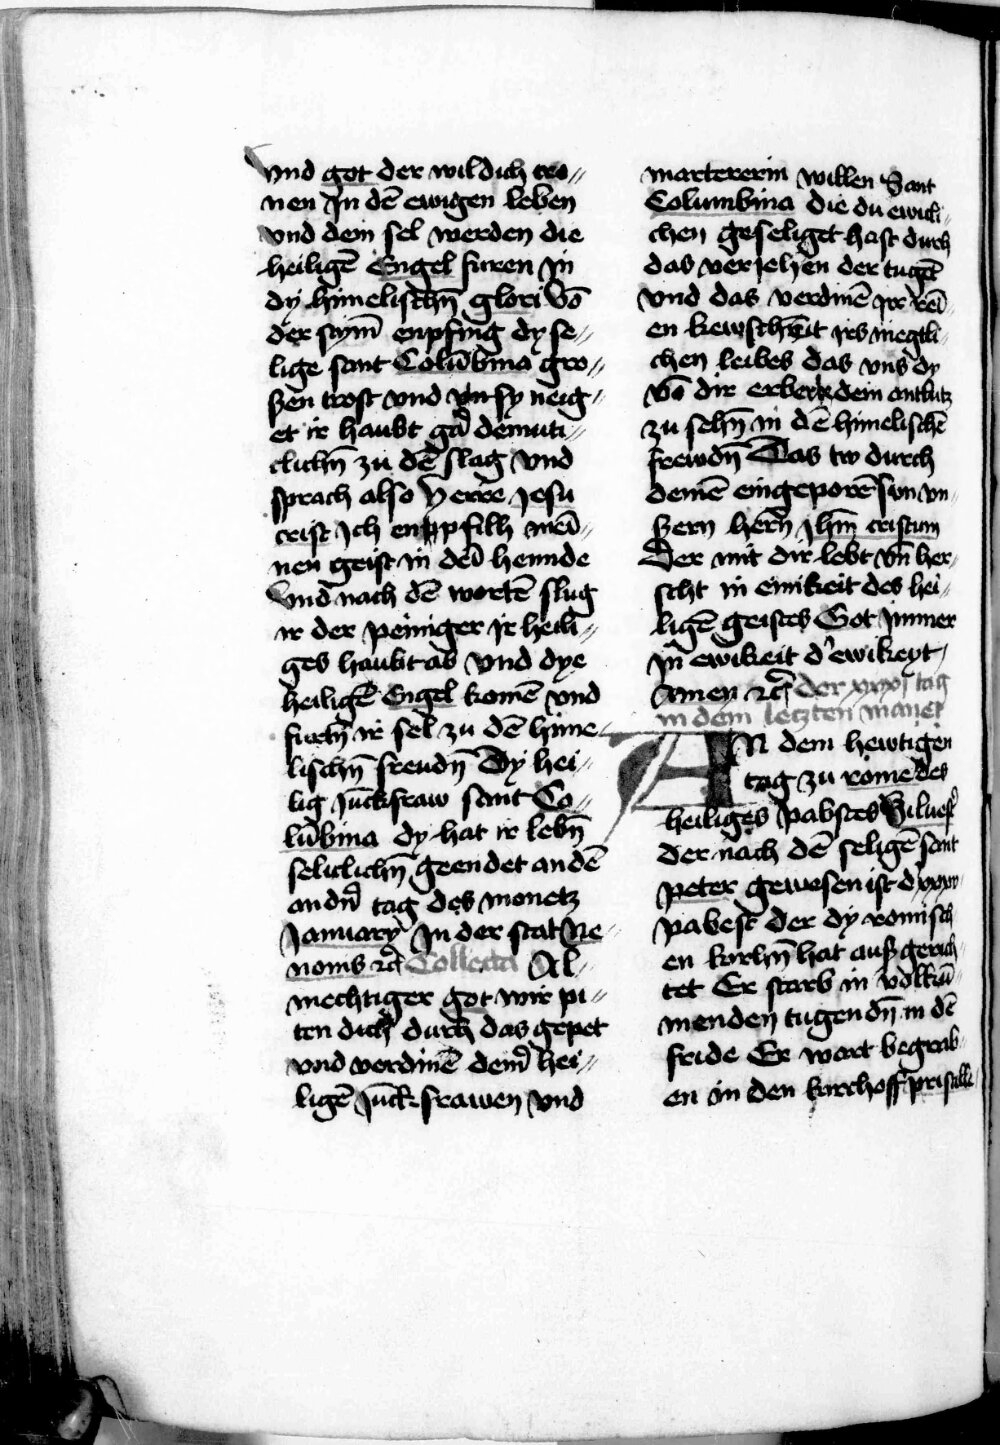 vnd got der wil dich cro//
nen Jn dē ewigen leben
vnd dein sel werden die
heiligē Engel furen in
dy himelischn̄ glori Vō
der stym̄ enpfing dy se//
lige sant Colūbina gro//
ßen trost vnd vn sy neig//
et ir haubt gā demuti//
clichn̄ zu dē slag vnd
sprach also Herre Jesu
crist Jch enpfilh mei̅//
nen geist in dei̅ hennde
Vnd nach dē wortē slug
ir der peiniger Jr heili//
ges haubt ab vnd dye
heiligē Engel komē vnd
furtn̄ ir sel zu dē hime//
lischn̄ freudn̄ Dy hei//
lig Jūckfraw sant Co//
lūbina dy hat ir lebn̄
seliclichn̄ geendet an dē
andn̄ tag des monetz
January Jn der stat Ne//
nonis ꝛc̄ Collecta Al//
mechtiger got wir pi//
ten dich durch das gepet
vnd verdinē dein̄ hei//
ligē Jūckfrawen vnd
martererin willen Sant
Columbina die du ewicli//
chen geseliget hast durch
das verjehen der tugēt
vnd das verdinē jrr rei̅//
en kewscheit jrs megtli//
chen leibes das vns dy
vō dir erberb dein antlutz
zu sehn̄ in dē himelischē
frewdn̄ Das tw durch
deinē eingeporē sun vn//
sern hern̄ Jhm̄ cristum
Der mit dir lebt vn̄ her//
scht in einikeit des hei//
ligē geistes Got jmmer
in ewikeit d̄ ewikeyt/
Amen ꝛc̄ der xxxj tag
in dem letzten manet
AN dem hewtigen
tag zu rome des
heiliges pabstes Siluest̄
der nach dē seligē sant
peter gewesen ist d xxxiiij
pabest der dy romisch
en kirchn̄ hat auß gerich//
tet Er starb in volkū//
menden tugendn̄ in dē
fride Er wart begrab//
en in den kirchoff priscille